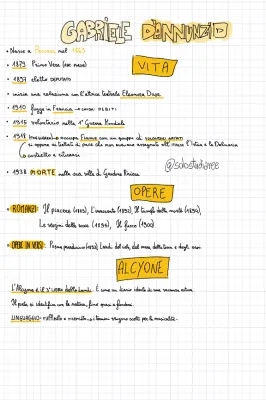 GABRIELE D'ANNUNZIO
• Nasce a Pescara nel 1863
VITA
• 1879 Primo Vere
• 1897 eletto DEPUTATO
• inizia una relazione con l'attrice teatrale Eleonora Duse
• 1910 fugge in Francia → DEBITI
• 1915 volontario nella 1ª Guerra Mondiale
• 1919 occupa Fiume con un gruppo di
si oppone ai trattati di pace che non avevano assegnato all' l'Istria e la Dalmazia
costretto a ritirarsi
@sabistudiaree
• 1938 MORTE nella sua villa di Gardone Riviera
OPERE
• ROMANZI: Il piacere (1889), L'innocente (1892), Il trionfo della morte (1894),
Le vergini delle rocce (1895), Il fuoco (1900)
• OPERE IN VERSI: Poema paradisiaco (1893) Laudi del cielo, del mare, della terra e degli eroi
ALCYONE
L'Alcyone è il 3° libro delle Laudi. È come un diario ideale di una vacanza estiva
Il poeta si identifica con la natura, fino quasi a fondersi.
LINGUAGGIO: raffinato e ricercato, i termini vengono scelti per la musicalità